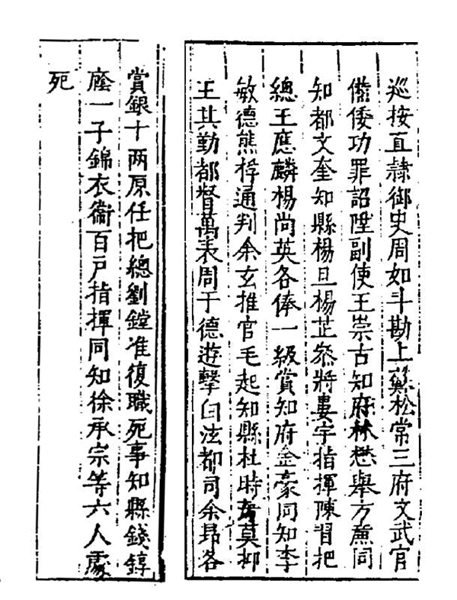 巡按直隷御史周如斗勘上蘇松常三府文武官
備倭功罪詔陞副使王崇古知府林懋舉方薦同
知都文奎知縣楊旦楊芷叅將婁宇指揮陳習把
總王應麟楊尚英各俸一級賞知府金豪同知李
敏德熊桴通判余玄推官毛起知縣杜時莫抑
王其勤都督萬表周于德遊擊白法都司余昻各
賞銀十两原任把總劉鏜准復職死事知縣錢錞
廕一子錦衣衞百戸指揮同知徐承宗等六人處
死